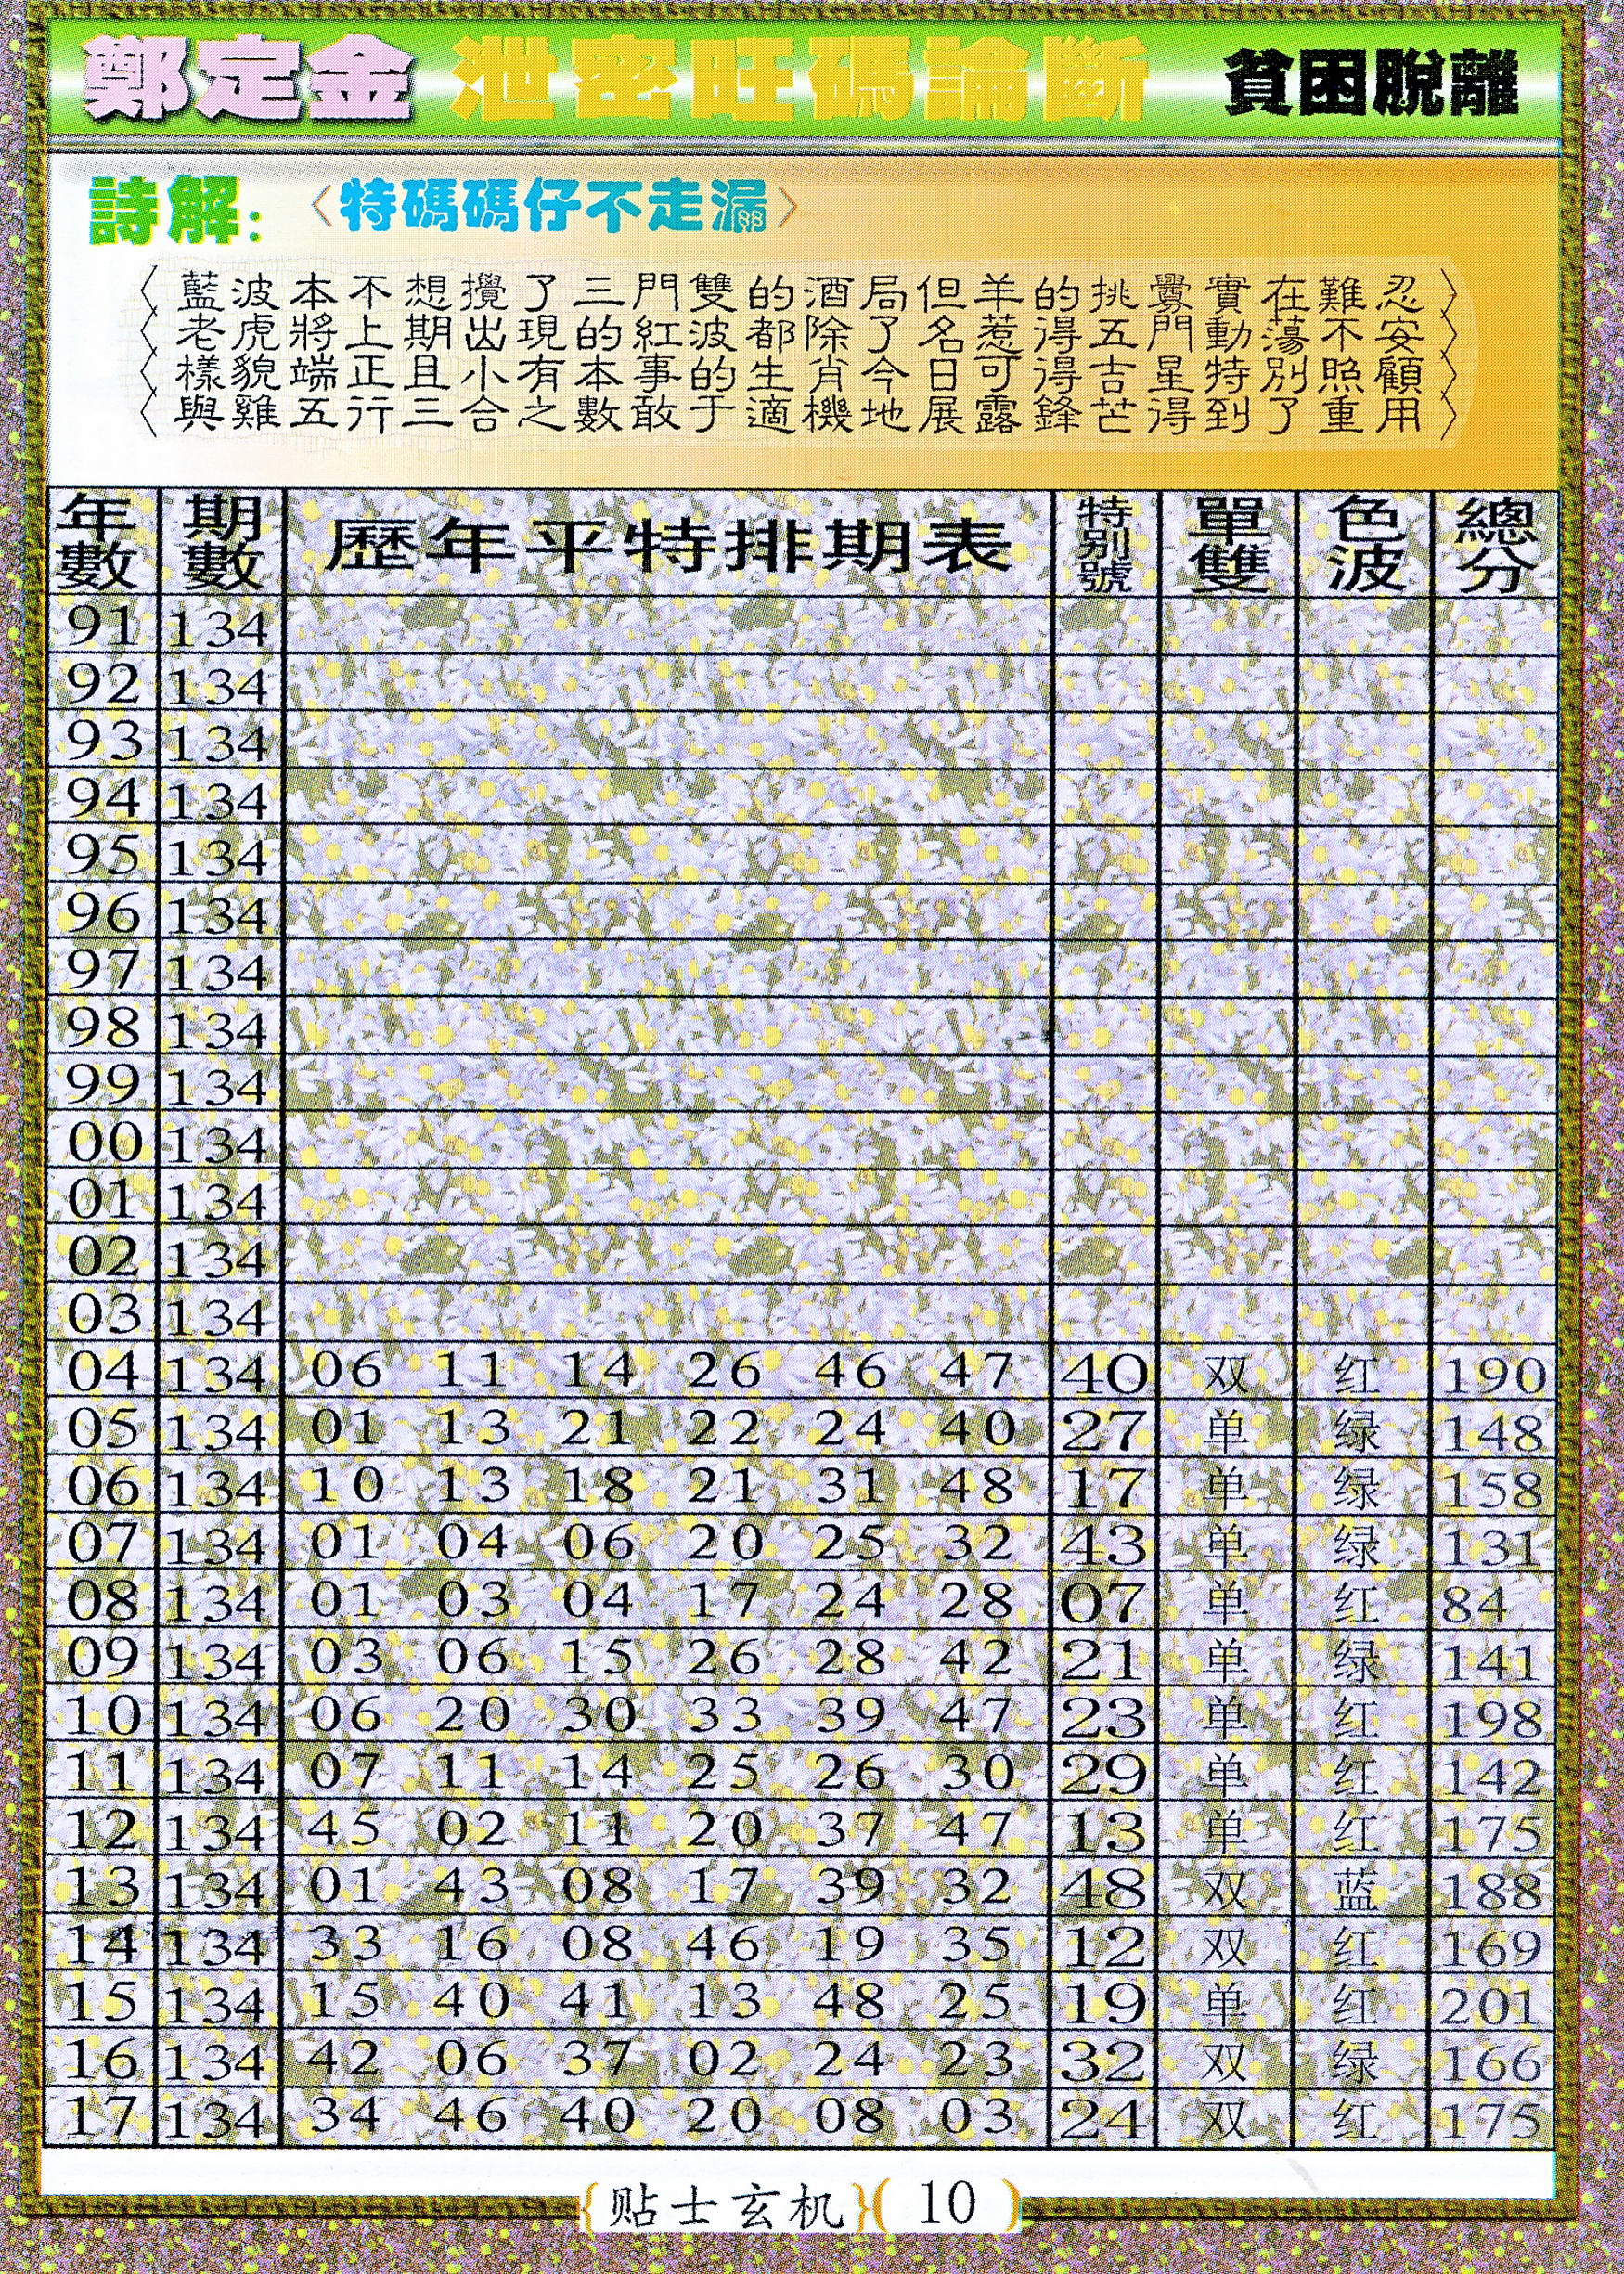 鄭定金 泄密旺碼論斷 貧困脫離
詩解: 〈特碼碼仔不走漏〉
〈藍波本不想攪了三門雙的酒局但羊的挑釁實在難忍〉
〈老虎將上期出現的紅波都除了名惹得五門動蕩不安〉
〈樣貌端正且小有本事的生肖今日可得吉星特別照顧〉
〈與雞五行三合之數敢于適機地展露鋒芒得到了重用〉
年數 期數 歷年平特排期表 特別號 單雙 色波 總分
91 134
92 134
93 134
94 134
95 134
96 134
97 134
98 134
99 134
00 134
01 134
02 134
03 134
04 134 06 11 14 26 46 47 40 双 红 190
05 134 01 13 21 22 24 40 27 单 绿 148
06 134 10 13 18 21 31 48 17 单 绿 158
07 134 01 04 06 20 25 32 43 单 绿 131
08 134 01 03 04 17 24 28 07 单 红 84
09 134 03 06 15 26 28 42 21 单 绿 141
10 134 06 20 30 33 39 47 23 单 红 198
11 134 07 11 14 25 26 30 29 单 红 142
12 134 45 02 11 20 37 47 13 单 红 175
13 134 01 43 08 17 39 32 48 双 蓝 188
14 134 33 16 08 46 19 35 12 双 红 169
15 134 15 40 41 13 48 25 19 单 红 201
16 134 42 06 37 02 24 23 32 双 绿 166
17 134 34 46 40 20 08 03 24 双 红 175
{贴士玄机}( 10 )